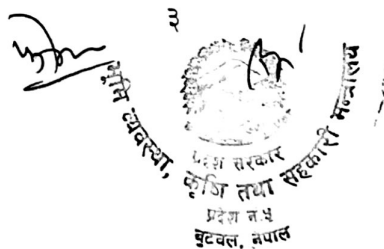 ३
भूमि व्यवस्था, कृषि तथा सहकारी मन्त्रालय
प्रदेश सरकार
प्रदेश नं.५
बुटवल, नेपाल